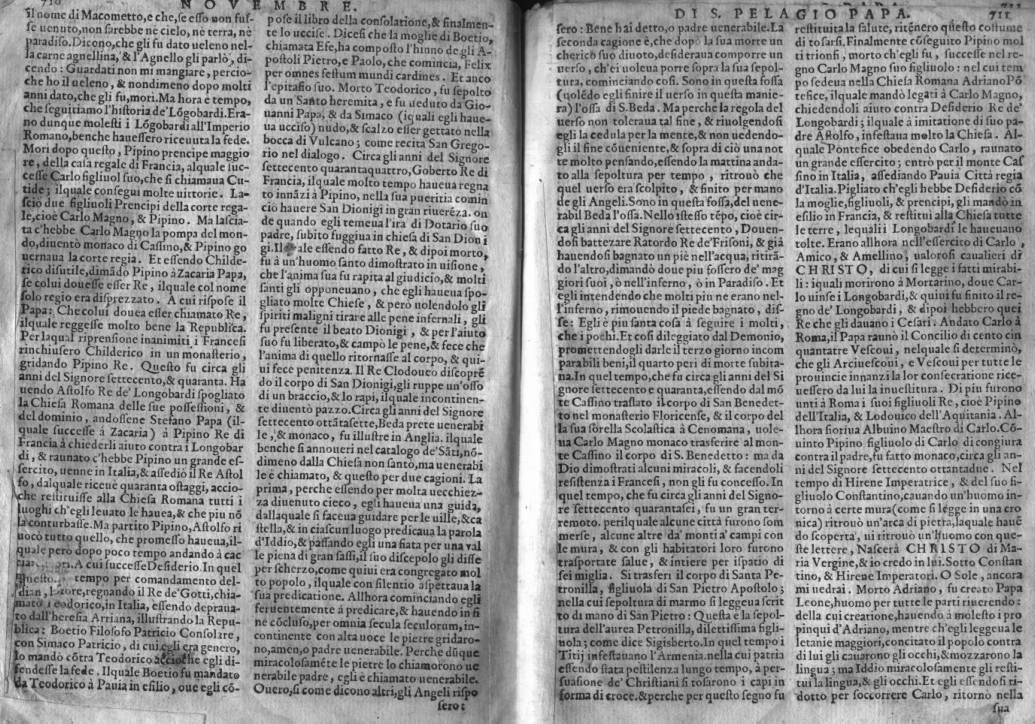 710
NOVEMBRE.
il nome di Macometto, e che, se esso non fus-
se uenuto, non sarebbe nè cielo, nè terra, nè
paradiso. Dicono, che gli fu dato ueleno nel-
la carne agnellina, & l'Agnello gli parlò, di-
cendo: Guardati non mi mangiare, percio-
che ho il ueleno, & nondimeno dopo molti
anni dato, che gli fu, mori. Ma hora e tempo,
che seguitiamo l'historia de' Lõgobardi. Era-
no dunque molesti i Lõgobardi all'Imperio
Romano, benche hauessero riceuuta la fede.
Mori dopo questo, Pipino prencipe maggio
re, della casa regale di Francia, alquale suc-
cesse Carlo figliuol suo, che si chiamaua Cu-
tide; ilquale consegui molte uittorie. La-
sciò due figliuoli Prencipi della corte rega-
le, cioè Carlo Magno, & Pipino. Ma lascia-
ta c'hebbe Carlo Magno la pompa del mon-
do, diuentò monaco di Cassino, & Pipino go
uernaua la corte regia. Et essendo Childe-
rico disutile, dimãdò Pipino à Zacaria Papa,
se colui douesse esser Re, ilquale col nome
solo regio era disprezzato. A cui rispose il
Papa: Che colui douea esser chiamato Re,
ilquale reggesse molto bene la Republica.
Perlaqual riprensione inanimiti i Francesi
rinchiusero Childerico in un monasterio,
gridando Pipino Re. Questo fu circa gli
anni del Signore settecento, & quaranta. Ha
uendo Astolfo Re de' Longobardi spogliato
la Chiesa Romana delle sue possessioni, &
del dominio, andossene Stefano Papa (il-
quale successe à Zacaria) à Pipino Re di
Francia à chiederli aiuto contra i Longobar
di, & raunato c'hebbe Pipino un grande es-
sercito, uenne in Italia, & assediò il Re Astol
fo, dalquale riceuè quaranta ostaggi, accio-
che restituisse alla Chiesa Romana tutti i
luoghi ch'egli leuato le hauea, & che piu nõ
la conturbasse. Ma partito Pipino, Astolfo ri
uocò tutto quello, che promesso haueua, il-
quale però dopo poco tempo andando à cac
A cui successe Desiderio. In quel
tempo per comandamento del-
regnando il Re de' Gotti, chia-
mato Teodorico, in Italia, essendo deprauа-
to dall'heresia Arriana, illustrando la Repu-
blica: Boetio Filosofo Patricio Consolare,
con Simaco Patricio, di cui egli era genero,
lo mandò cõtra Teodorico accioche egli di-
fendesse la fede. Ilquale Boetio fu mandato
da Teodorico à Pauia in esilio, oue egli cõ-
pose il libro della consolatione, & finalmen-
te lo uccise. Dicesi che la moglie di Boetio,
chiamata Efe, ha composto l'hinno de gli A-
postoli Pietro, e Paolo, che comincia, Felix
per omnes festum mundi cardines. Et anco
l'epitafio suo. Morto Teodorico, fu sepolto
da un Santo heremita, e fu ueduto da Gio-
uanni Papa, & da Simaco (iquali egli haue-
ua ucciso) nudo, & scalzo esser gettato nella
bocca di Vulcano; come recita San Grego-
rio nel dialogo. Circa gli anni del Signore
settecento quarantaquattro, Goberto Re di
Francia, ilquale molto tempo haueua regna
to innãzi à Pipino, nella sua pueritia comin
ciò hauere San Dionigi in gran riuerẽza. on
de quando egli temeua l'ira di Dotario suo
padre, subito fuggiua in chiesa di San Dioni
gi. Ilquale essendo fatto Re, & dipoi morto,
fu à un'huomo santo dimostrato in uisione,
che l'anima sua fu rapita al giudicio, & molti
santi gli opponeuano, che egli haueua spo-
gliato molte Chiese, & però uolendolo gli
spiriti maligni tirare alle pene infernali, gli
fu presente il beato Dionigi, & per l'aiuto
suo fu liberato, & campò le pene, & fece che
l'anima di quello ritornasse al corpo, & qui-
ui fece penitenza. Il Re Clodoueo discoprẽ
do il corpo di San Dionigi, gli ruppe un'osso
di un braccio, & lo rapì, ilquale incontinen-
te diuentò pazzo. Circa gli anni del Signore
settecento ottãtasette, Beda prete uenerabi
le, & monaco, fu illustre in Anglia. ilquale
benche si annoueri nel catalogo de' Sãti, nõ-
dimeno dalla Chiesa non santo, ma uenerabi
le è chiamato, & questo per due cagioni. La
prima, perche essendo per molta uecchiez-
za diuenuto cieco, egli haueua una guida,
dallaquale si faceua guidare per le uille, & ca
stella, & in ciascun luogo predicaua la parola
d'Iddio, & passando egli una fiata per una val
le piena di gran sassi, il suo discepolo gli disse
per scherzo, come quiui era congregato mol
to popolo, ilquale con silentio aspettaua la
sua predicatione. Allhora cominciando egli
feruentemente à predicare, & hauendo in fi
ne cõcluso, per omnia secula seculorum, in-
continente con alta uoce le pietre gridaro-
no, amen, o padre uenerabile. Perche dũque
miracolosamẽte le pietre lo chiamorono ue
nerabile padre, egli è chiamato uenerabile.
Ouero, si come dicono altri, gli Angeli rispo
sero:
DI S. PELAGIO PAPA.
711
sero: Bene hai detto, o padre uenerabile. La
seconda cagione è, che dopò la sua morte un
cherico suo diuoto, desideraua comporre un
uerso, ch'ei uoleua porre sopra la sua sepol-
tura, cominciando così. Sono in questa fossa
(uolẽdo egli finire il uerso in questa manie-
ra) l'ossa di S. Beda. Ma perche la regola del
uerso non toleraua tal fine, & riuolgendosi
egli la cedula per la mente, & non uedendo-
gli il fine cõueniente, & sopra di ciò una not
te molto pensando, essendo la mattina anda-
to alla sepoltura per tempo, ritrouò che
quel uerso era scolpito, & finito per mano
de gli Angeli. Sono in questa fossa, del uener-
abil Beda l'ossa. Nello istesso tẽpo, cioè cir-
ca gli anni del Signore settecento, Douen-
dosi battezare Ratordo Re de' Frisoni, & già
hauendosi bagnato un piè nell'acqua, ritirã-
do l'altro, dimandò doue piu fossero de' mag
giori suoi, ò nell'inferno, ò in Paradiso. Et
egli intendendo che molti piu ne erano nel-
l'inferno, rimouendo il piede bagnato, dis-
se: Egli è piu santa cosa à seguire i molti,
che i pochi. Et così dileggiato dal Demonio,
promettendogli darle il terzo giorno incom
parabili beni, il quarto perì di morte subita-
na. In quel tempo, che fu circa gli anni del Si
gnore settecento e quaranta, essendo dal mõ
te Cassino traslato il corpo di San Benedet-
to nel monasterio Floricense, & il corpo del
la sua sorella Scolastica à Cenomana, uole-
ua Carlo Magno monaco trasferire al mon-
te Cassino il corpo di S. Benedetto: ma da
Dio dimostrati alcuni miracoli, & facendoli
resistenza i Francesi, non gli fu concesso. In
quel tempo, che fu circa gli anni del Signo-
re settecento quarantasei, fu un gran ter-
remoto. perilquale alcune città furono som
merse, alcune altre da' monti a' campi con
le mura, & con gli habitatori loro furono
trasportate salue, & intiere per ispatio di
sei miglia. Si trasferì il corpo di Santa Pe-
tronilla, figliuola di San Pietro Apostolo;
nella cui sepoltura di marmo si leggeua scrit
to di mano di San Pietro: Questa e la sepol-
tura dell'aurea Petronilla, dilettissima figli-
uola; come dice Sigisberto. In quel tempo i
Titij infestauano l'Armenia. nella cui patria
essendo stata pestilenza lungo tempo, à per-
suasione de' Christiani si tosarono i capi in
forma di croce. & perche per questo segno fu
restituita la salute, ritẽnero questo costume
di tosarsi. Finalmente cõseguito Pipino mol
ti trionfi, morto ch'egli fu, successe nel re-
gno Carlo Magno suo figliuolo: nel cui tem
po sedeua nella Chiesa Romana Adriano Põ
tefice, ilquale mandò legati à Carlo Magno,
chiedendoli aiuto contra Desiderio Re de'
Longobardi; ilquale à imitatione di suo pa-
dre Astolfo, infestaua molto la Chiesa. Al-
quale Pontefice obedendo Carlo, raunato
un grande essercito; entrò per il monte Cas
sino in Italia, assediando Pauia Città regia
d'Italia. Pigliato ch'egli hebbe Desiderio cõ
la moglie, figliuoli, & prencipi, gli mandò in
esilio in Francia, & restituì alla Chiesa tutte
le terre, lequali i Longobardi le haueuano
tolte. Erano allhora nell'essercito di Carlo,
Amico, & Amellino, ualorosi caualieri di
CHRISTO, di cui si legge i fatti mirabi-
li: iquali morirono à Mortarino, doue Car-
lo uinse i Longobardi, & quiui fu finito il re-
gno de' Longobardi, & dipoi hebbero quei
Re che gli dauano i Cesari. Andato Carlo à
Roma, il Papa raunò il Concilio di cento cin
quantatre Vescoui, nelquale si determinò,
che gli Arciuescoui, e Vescoui per tutte le
prouincie innanzi la lor consecratione rice-
uessero da lui la inuestitura. Di piu furono
unti à Roma i suoi figliuoli Re, cioè Pipino
dell'Italia, & Lodouico dell'Aquitania. Al-
lhora fioriua Albuino Maestro di Carlo. Cõ-
uinto Pipino figliuolo di Carlo di congiura
contra il padre, fu fatto monaco, circa gli an-
ni del Signore settecento ottantadue. Nel
tempo di Hirene Imperatrice, & del suo fi-
gliuolo Constantino, cauando un'huomo in-
torno à certe mura (come si legge in una cro
nica) ritrouò un'arca di pietra, laquale hauẽ
do scoperta, ui ritrouò un'huomo con que-
ste lettere, Nascerà CHRISTO di Ma-
ria Vergine, & io credo in lui. Sotto Constan
tino, & Hirene Imperatori. O Sole, ancora
mi uedrai. Morto Adriano, fu creato Papa
Leone, huomo per tutte le parti riuerendo:
della cui creatione, hauendo à molesto i pro
pinqui d'Adriano, mentre ch'egli leggeua le
letanie maggiori, concitato il popolo contra
di lui gli cauarono gli occhi, & mozzarono la
lingua; ma Iddio miracolosamente gli resti-
tuì la lingua, & gli occhi. Et egli essendosi ri-
dotto per soccorrere Carlo, ritornò nella
sua